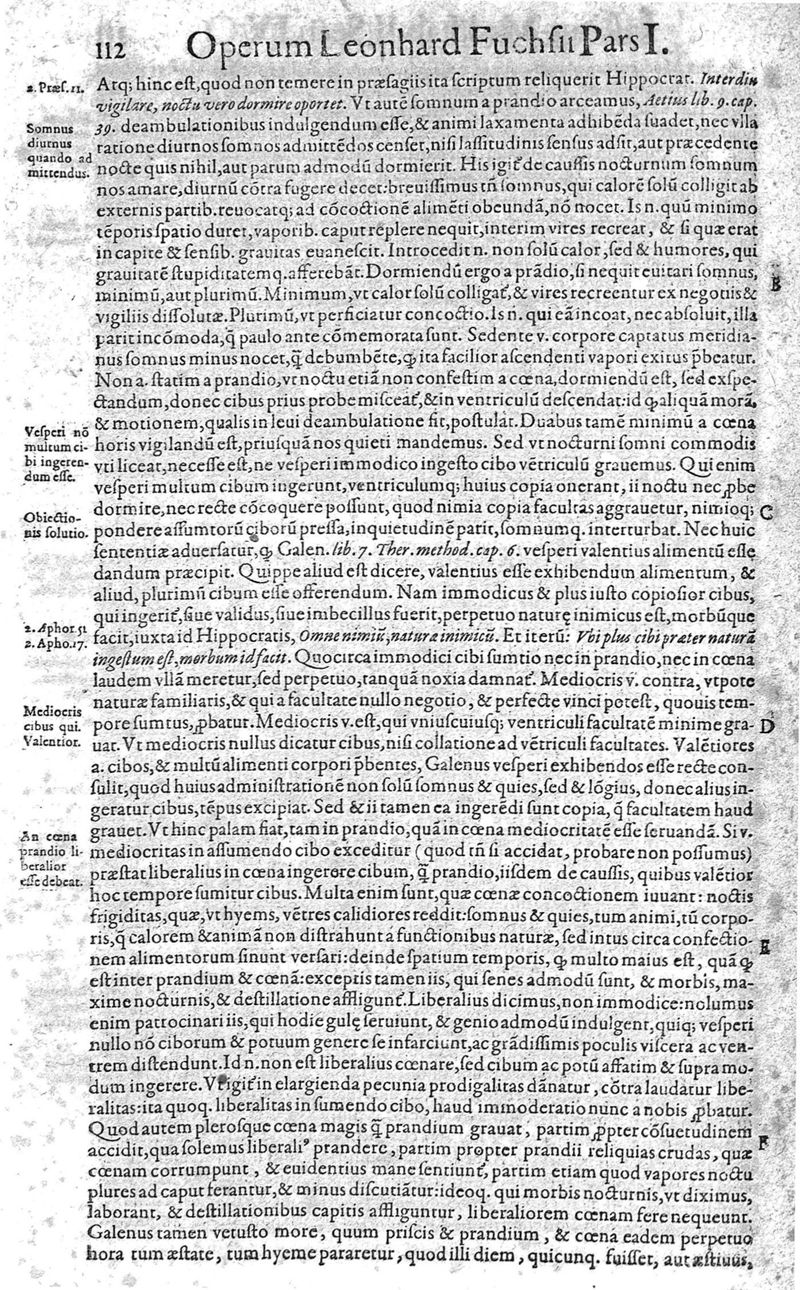 112 Operum Leonhard Fuchsii Pars I.
2. Præs. 11.
Atq; hinc est, quod non temere in præsagiis ita scriptum reliquerit Hippocrat. Interdiu
vigilare, noctu vero dormire oportet. Vt autē somnum a prandio arceamus, Aetius lib. 9. cap.
Somnus
diurnus
quando ad
mittendus.
39. deambulationibus indulgendum esse, & animi laxamenta adhibēda suadet, nec vlla
ratione diurnos somnos admittēdos censet, nisi lassitudinis sensus adsit, aut præcedente
nocte quis nihil, aut parum admodū dormierit. His igit̃ de caussis nocturnum somnum
nos amare, diurnū cōtra fugere decet: breuissimus tñ somnus, qui calorē solū colligit ab
externis partib. reuocatq; ad cōcoctionē alimēti obeundã, nō nocet. Is n. quū minimo
tēporis spatio duret, vaporib. caput replere nequit, interim vires recreat, & si quæ erat
in capite & sensib. grauitas euanescit. Introcedit n. non solū calor, sed & humores, qui
grauitatē stupiditatemq. afferebãt. Dormiendū ergo a prãdio, si nequit euitari somnus,
B
minimū, aut plurimū. Minimum, vt calor solū colligat̃, & vires recreentur ex negotiis &
vigiliis dissolutæ. Plurimū, vt perficiatur concoctio. Is n. qui eã incoat, nec absoluit, illa
parit incōmoda, q̃ paulo ante cōmemorata sunt. Sedente v. corpore captatus meridia-
nus somnus minus nocet, q̃ debumbēte, ꝙ ita facilior ascendenti vapori exitus p̃beatur.
Non a. statim a prandio, vt noctu etiã non confestim a cœna, dormiendū est, sed exspe-
ctandum, donec cibus prius probe misceat̃, & in ventriculū descendat: id ꝙ aliquã morã,
& motionem, qualis in leui deambulatione fit, postulat. Duabus tamē minimū a cœna
Vesperi nō
multum ci-
bi ingeren-
dum esse.
horis vigilandū est, priusquã nos quieti mandemus. Sed vt nocturni somni commodis
vti liceat, necesse est, ne vesperi immodico ingesto cibo vētriculū grauemus. Qui enim
vesperi multum cibum ingerunt, ventriculumq; huius copia onerant, ii noctu nec ꝓbe
Obiectio-
nis solutio.
dormire, nec recte cōcoquere possunt, quod nimia copia facultas aggrauetur, nimioq;
C
pondere assumtorū ciborū pressa, inquietudinē parit, somnumq. interturbat. Nec huic
sententiæ aduersatur, ꝙ Galen. lib. 7. Ther. method. cap. 6. vesperi valentius alimentū esse
dandum præcipit. Quippe aliud est dicere, valentius esse exhibendum alimentum, &
aliud, plurimū cibum esse offerendum. Nam immodicus & plus iusto copiosior cibus,
qui ingerit̃, siue validus, siue imbecillus fuerit, perpetuo naturę inimicus est, morbūque
2. Aphor. 51
2. Apho. 17.
facit, iuxta id Hippocratis, Omne nimiū, naturæ inimicū. Et iterū: Vbi plus cibi præter naturã
ingestum est, morbum id facit. Quocirca immodici cibi sumtio nec in prandio, nec in cœna
laudem vllã meretur, sed perpetuo, tanquã noxia damnat̃. Mediocris v. contra, vtpote
Mediocris
cibus qui.
Valentior.
naturæ familiaris, & qui a facultate nullo negotio, & perfecte vinci potest, quouis tem-
pore sumtus, ꝓbatur. Mediocris v. est, qui vniuscuiusq; ventriculi facultatē minime gra-
D
uat. Vt mediocris nullus dicatur cibus, nisi collatione ad vētriculi facultates. Valētiores
a. cibos, & multū alimenti corpori p̃bentes, Galenus vesperi exhibendos esse recte con-
sulit, quod huius administrationē non solū somnus & quies, sed & lōgius, donec alius in-
geratur cibus, tēpus excipiat. Sed & ii tamen ea ingerēdi sunt copia, q̃ facultatem haud
An cœna
prandio li-
beralior
esse debeat.
grauet. Vt hinc palam fiat, tam in prandio, quã in cœna mediocritatē esse seruandã. Si v.
mediocritas in assumendo cibo exceditur (quod tñ si accidat, probare non possumus)
præstat liberalius in cœna ingerere cibum, q̃ prandio, iisdem de caussis, quibus valētior
hoc tempore sumitur cibus. Multa enim sunt, quæ cœnæ concoctionem iuuant: noctis
frigiditas, quæ, vt hyems, vētres calidiores reddit: somnus & quies, tum animi, tū corpo-
ris, q̃ calorem & animã non distrahunt a functionibus naturæ, sed intus circa confectio-
E
nem alimentorum sinunt versari: deinde spatium temporis, ꝙ multo maius est, quã ꝙ
est inter prandium & cœnã: exceptis tamen iis, qui senes admodū sunt, & morbis, ma-
xime nocturnis, & destillatione affligunt̃. Liberalius dicimus, non immodice: nolumus
enim patrocinari iis, qui hodie gulę seruiunt, & genio admodū indulgent, quiq; vesperi
nullo nō ciborum & potuum genere se infarciunt, ac grãdissimis poculis viscera ac ven-
trem distendunt. Id n. non est liberalius cœnare, sed cibum ac potū affatim & supra mo-
dum ingerere. Vt igit̃ in elargienda pecunia prodigalitas dãnatur, cōtra laudatur libe-
ralitas: ita quoq. liberalitas in sumendo cibo, haud immoderatio nunc a nobis ꝓbatur.
Quod autem plerosque cœna magis q̃ prandium grauat, partim ꝓpter cōsuetudinem
F
accidit, qua solemus liberaliꝰ prandere, partim propter prandii reliquias crudas, quæ
cœnam corrumpunt, & euidentius mane sentiunt̃, partim etiam quod vapores noctu
plures ad caput ferantur, & minus discutiãtur: ideoq. qui morbis nocturnis, vt diximus,
laborant, & destillationibus capitis affliguntur, liberaliorem cœnam fere nequeunt.
Galenus tamen vetusto more, quum priscis & prandium, & cœna eadem perpetuo
hora tum æstate, tum hyeme pararetur, quod illi diem, quicunq. fuisset, aut æstiuus,